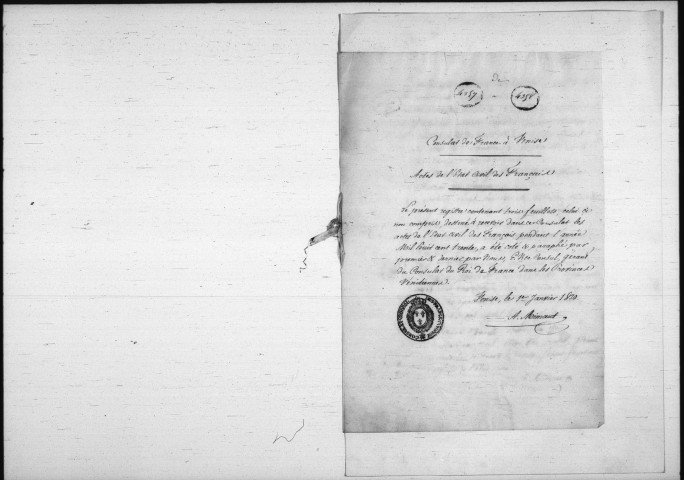 4057 - 4058
Consulat de France à Venise
Actes de l'Etat civil des Français
Le présent registre contenant trois feuillets, celui-ci
non compris, destiné à recevoir dans ce Consulat les
actes de l'Etat civil des Français pendant l'année
Mil huit cent trente, a été coté & paraphé par
premier & dernier par Nous, Vice Consul, gérant
du Consulat du Roi de France dans les Provinces
Vénitiennes.
Venise, le 1er Janvier 1830.